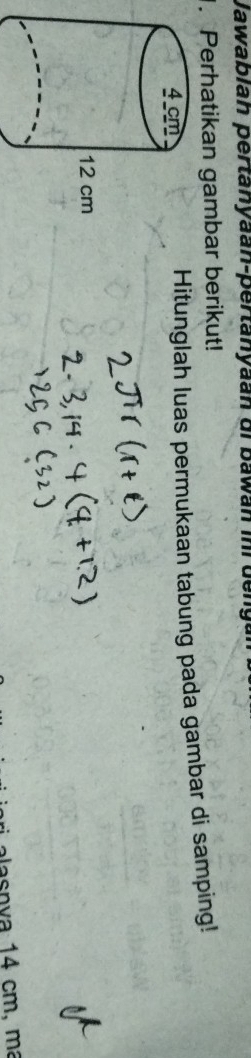 Jawablah pertanyaan-pertanyaan di bawah ini dengan
1. Perhatikan gambar berikut!
4 cm
12 cm
Hitunglah luas permukaan tabung pada gambar di samping!
2πr (r+t)
2 · 3,14 · 4 (4 + 12)
alasnya 14 cm,